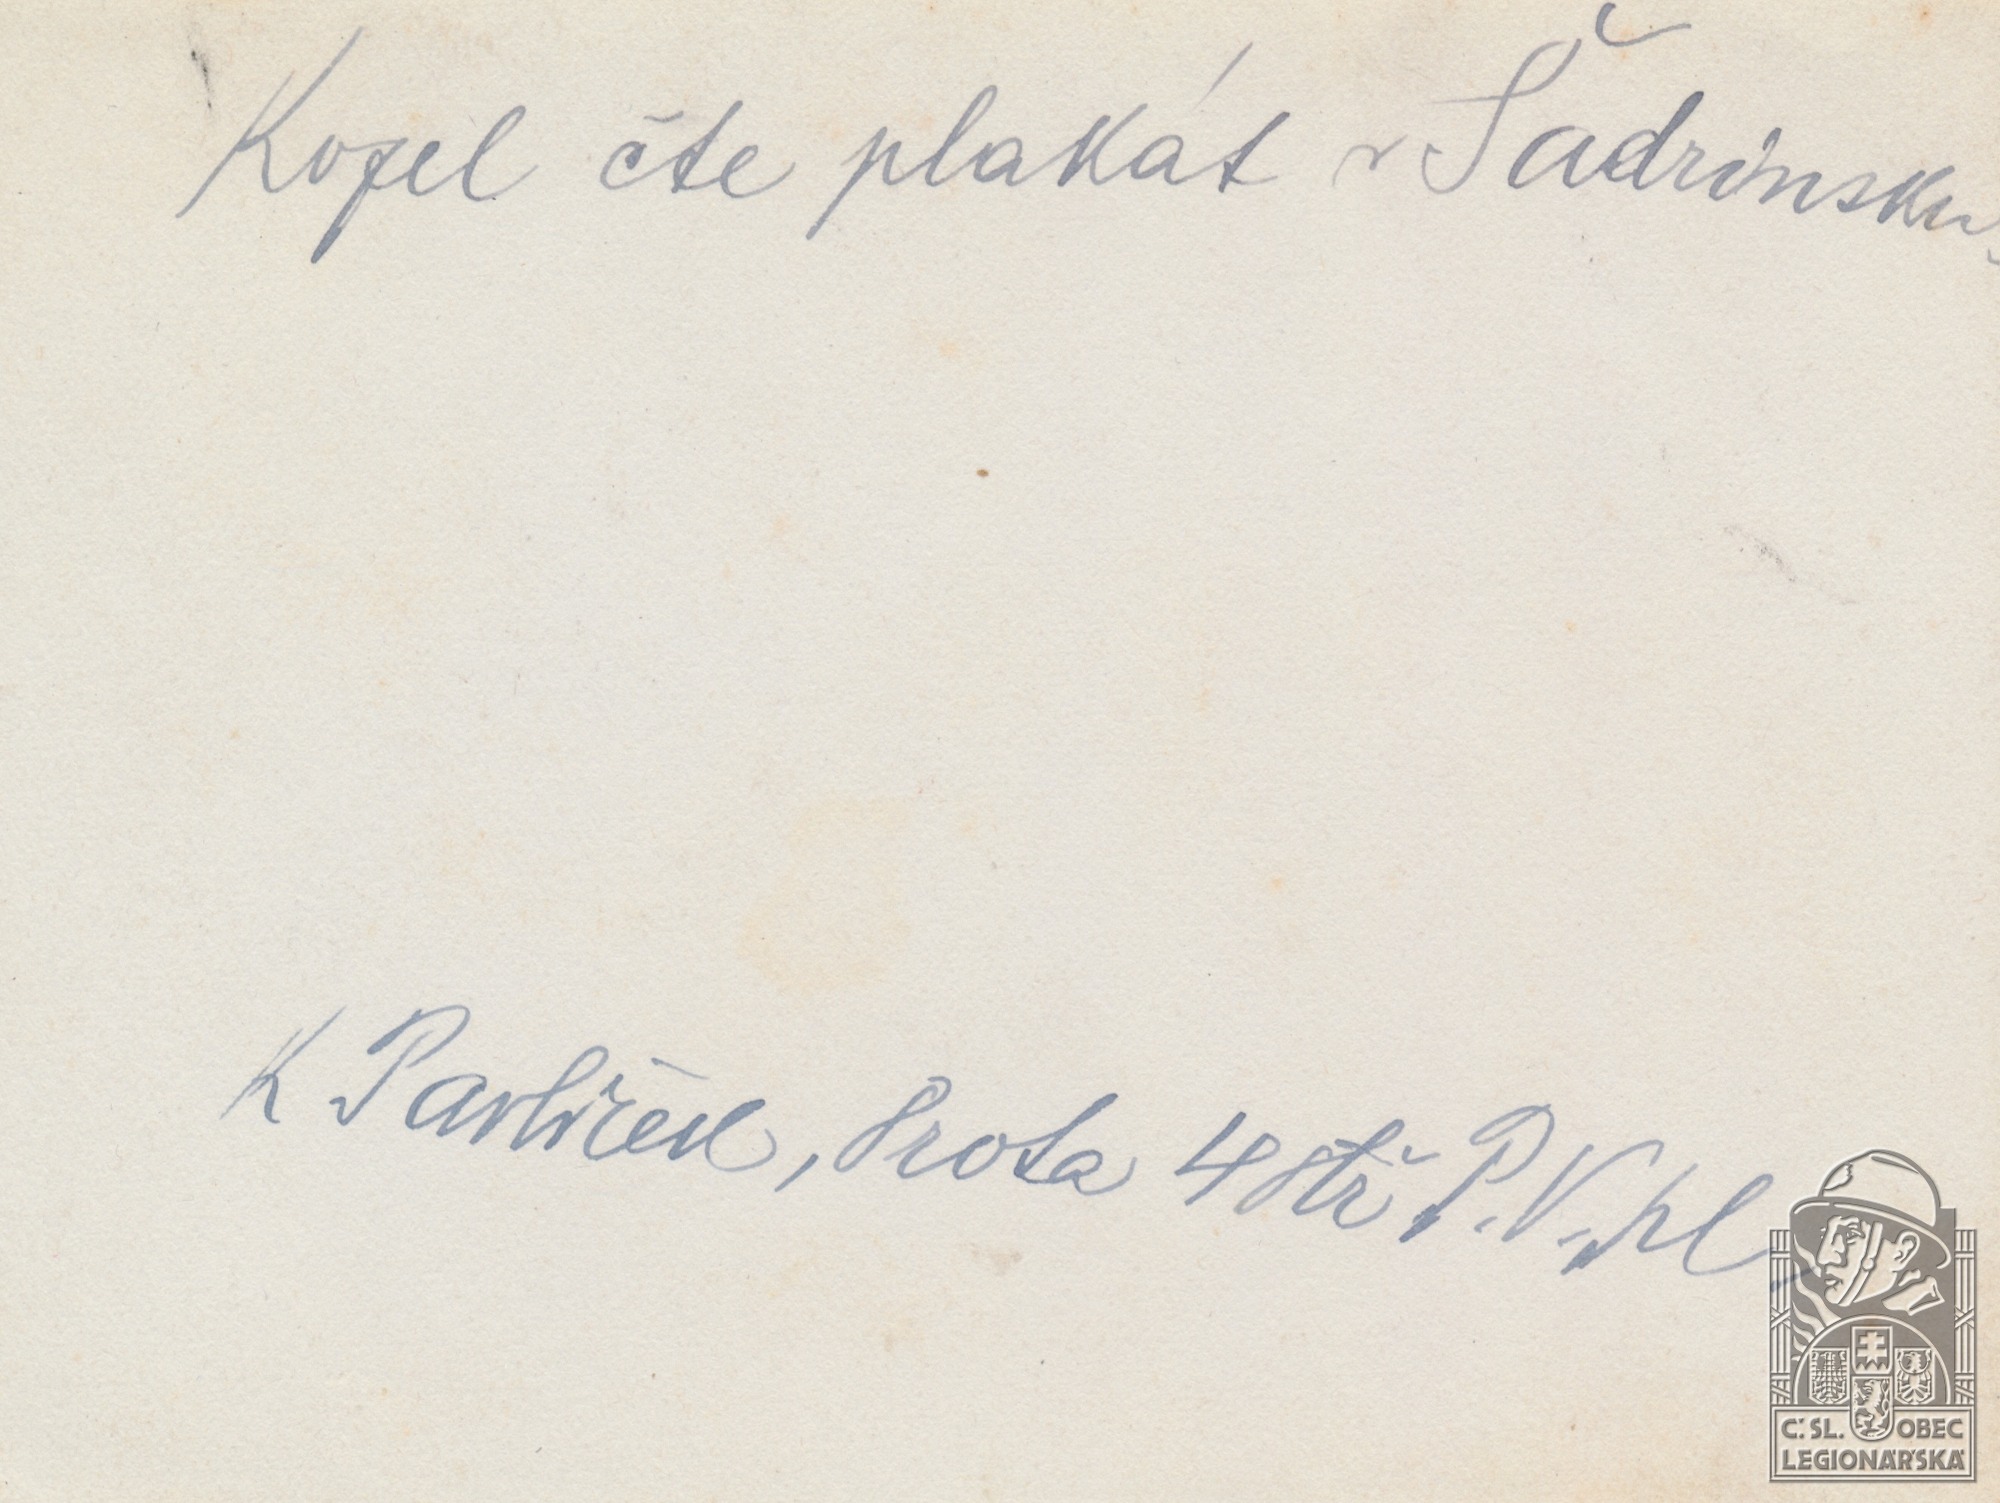 Kozel čte plakát v Šadrinsku,
K Pavlíček, 8 rota 4 stř P.V. pl
Č.SL. OBEC
LEGIONÁŘSKÁ